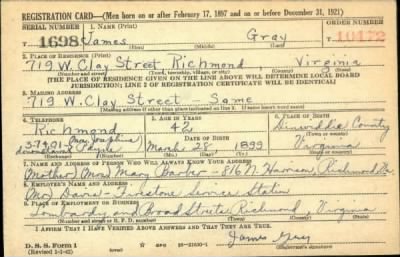 REGISTRATION CARD—(Men born on or after February 17, 1897 and on or before December 31, 1921)
SERIAL NUMBER 1. NAME (Print) ORDER NUMBER
T 1698 James Gray T 10172
(First) (Middle) (Last)
2. PLACE OF RESIDENCE (Print)
719 W. Clay Street Richmond, Virginia
(Number and street) (Town, township, village, or city) (County) (State)
[THE PLACE OF RESIDENCE GIVEN ON THE LINE ABOVE WILL DETERMINE LOCAL BOARD
JURISDICTION; LINE 2 OF REGISTRATION CERTIFICATE WILL BE IDENTICAL]
3. MAILING ADDRESS
719 W. Clay Street Same
[Mailing address if other than place indicated on line 2. If same insert word same]
4. TELEPHONE 5. AGE IN YEARS 6. PLACE OF BIRTH
Richmond 42 Dinwiddie County
DATE OF BIRTH (Town or county)
March 28 1899 Virginia
(Exchange) (Number) (Mo.) (Day) (Yr.) (State or country)
7. NAME AND ADDRESS OF PERSON WHO WILL ALWAYS KNOW YOUR ADDRESS
(Mother) Mrs Mary Barber - 816 N. Harrison, Richmond Va.
8. EMPLOYER'S NAME AND ADDRESS
Mr Davis - Firestone Service Station
9. PLACE OF EMPLOYMENT OR BUSINESS
Lombardy and Broad Streets, Richmond, Virginia
(Number and street or R. F. D. number) (Town) (County) (State)
I AFFIRM THAT I HAVE VERIFIED ABOVE ANSWERS AND THAT THEY ARE TRUE.
James Gray
D. S. S. Form 1 (Registrant's signature)